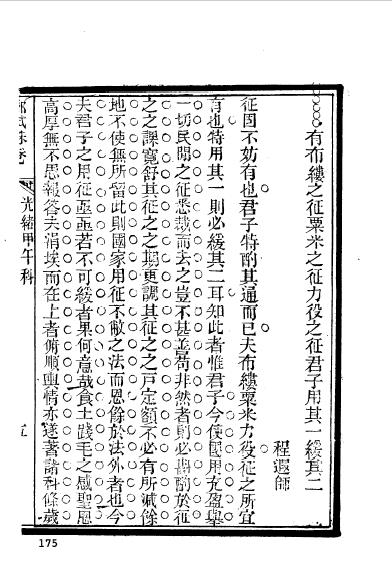 有布縷之征粟米之征力役之征君子用其一緩其二
程遐師
征固不妨有也君子特酌其通而已夫布縷粟米力役征之所宜
有也特用其一則必緩其二耳知此者惟君子今使國用充盈舉
一切民間之征悉裁而去之豈不甚善苟非然者則必斟酌於征
之之課寬舒其征之之期更調其征之之戸定額不必有所減餘
地不使無所留此則國家用征不敝之法而恩餘於法外者也今
夫君子之用征亟亟若不可緩者果何意哉食土踐毛之感聖恩
高厚無不思報答夫涓埃而在上者俯順輿情亦遂著諸科條歲
光緒甲午科
五
175